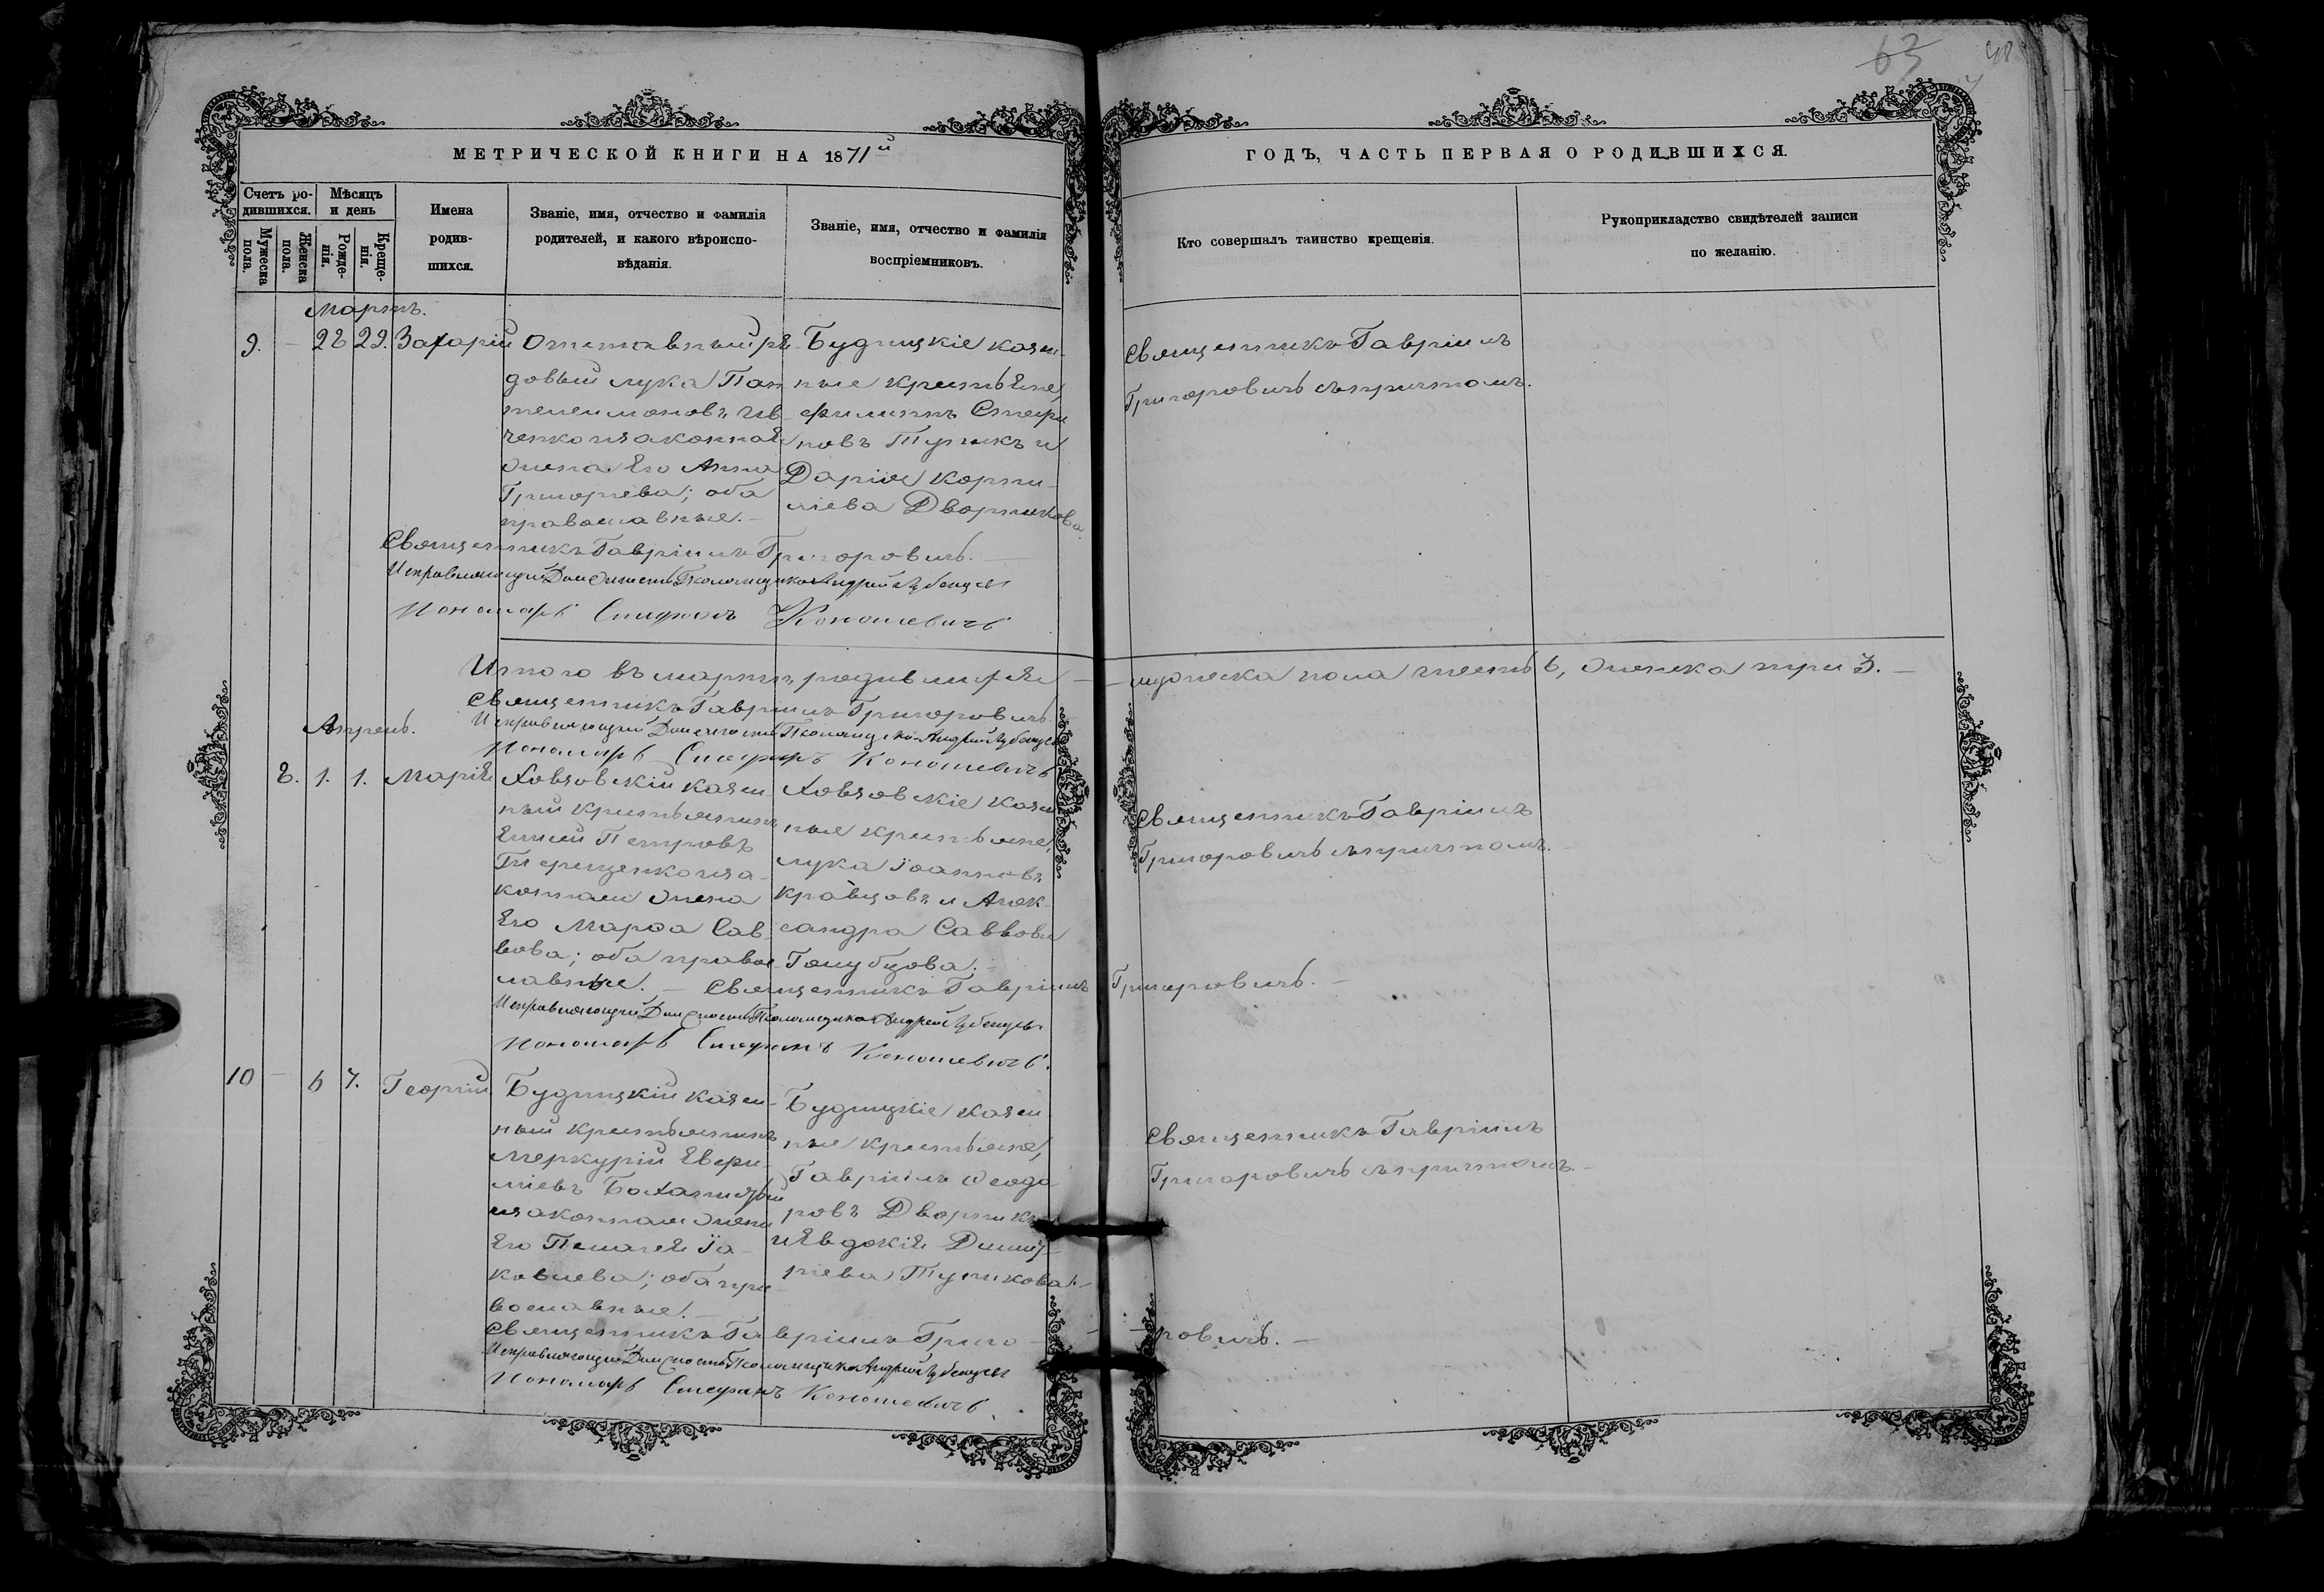 63 48
МЕТРИЧЕСКОЙ КНИГИ НА 1871й
ГОДЪ, ЧАСТЬ ПЕРВАЯ О РОДИВШИХСЯ.
Счетъ ро-
дившихся.
Мѣсяцъ
и день
Мужеска
пола.
Женска
пола.
Рожде-
нія.
Креще-
нія.
Имена
родив-
шихся.
Званіе, имя, отчество и фамилія
родителей, и какого вѣроиспо-
вѣданія.
Званіе, имя, отчество и фамилія
воспріемниковъ.
Кто совершалъ таинство крещенія.
Рукоприкладство свидѣтелей записи
по желанію.
Мартъ.
9. – 28 29. Захарій
Отставный ря-
довый Лука Пан
телеимоновъ
и законная
жена Его Анна
Григорьева; оба
православные.–
Будницкіе казен-
ные крестьяне,
Филиппъ Стефа
новъ Тупикъ и
Дарія Корни-
ліева Дворникова
Священникъ Гавріилъ
Григоровичъ съ причтомъ.
Священникъ Гавріилъ Григоровичъ.–
Исправляющій Должность Псаломщика Андрей
Пономарь Стефанъ Кононевичъ
Итого въ Мартѣ родившихся – мужеска пола шесть 6, женска три 3.–
Священникъ Гавріилъ Григоровичъ
Исправляющій Должность Псаломщика Андрей
Пономарь Стефанъ Кононевичъ
Апрель.
8. 1. 1. Марія
Ховзовскій казен
ный крестьянинъ
Петровъ
Терещенко и за-
конная жена
Его Марѳа Сав-
вова; оба правос
лавные.–
Ховзовскіе казен
ные крестьяне,
Лука Іоанновъ
Кравцовъ и Алек-
сандра Саввова
Голубцова.–
Священникъ Гавріилъ
Григоровичъ съ причтомъ.–
Священникъ Гавріилъ Григоровичъ.–
Исправляющій Должность Псаломщика Андрей
Пономарь Стефанъ Кононевичъ.
10 – 6 7. Георгій
Будницкій казен-
ный крестьянинъ
Меркурій Евфи-
міевъ
и законная жена
Его Пелагея Іа-
ковлева; оба пра-
вославные.–
Будницкіе казен
ные крестьяне,
Гавріилъ Ѳеодо
ровъ Дворникъ
и Евдокія Димит-
ріева Тупикова.–
Священникъ Гавріилъ
Григоровичъ съ причтомъ.–
Священникъ Гавріилъ Григо – –ровичъ.–
Исправляющій Должность Псаломщика Андрей
Пономарь Стефанъ Кононевичъ.